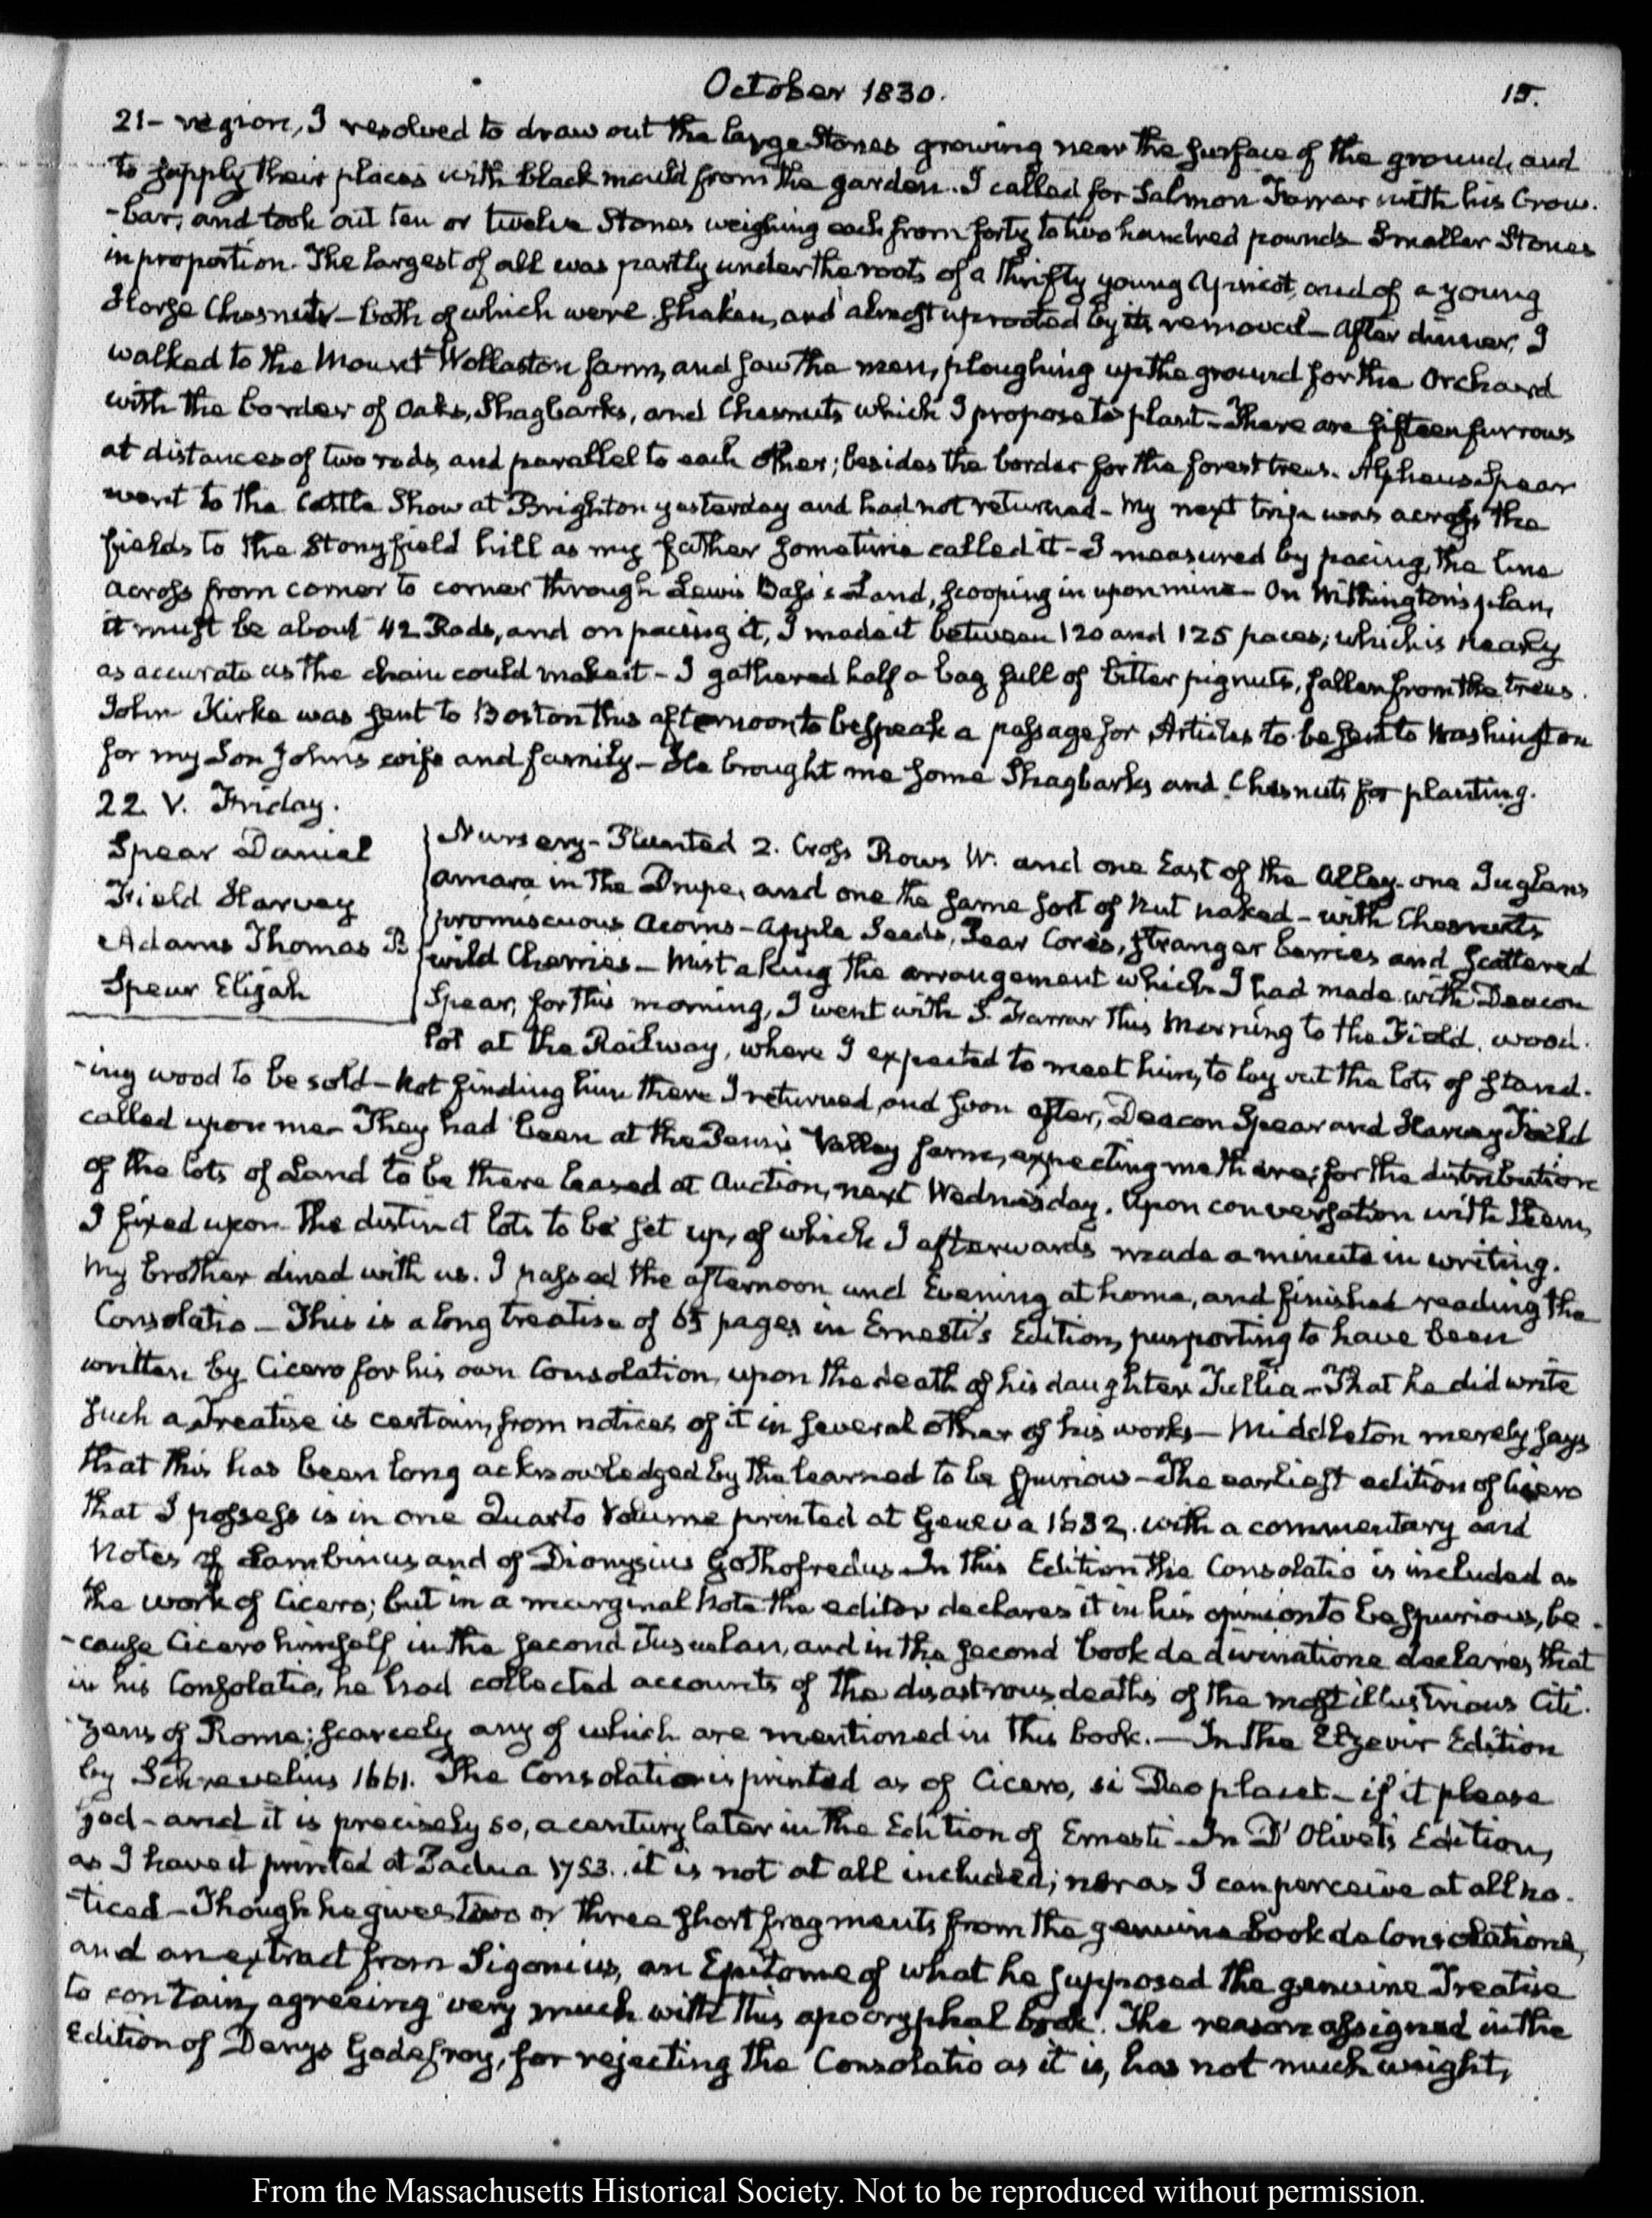 October 1830.
15.
21 - region, I resolved to draw out the large Stones growing near the surface of the ground, and
to supply their places with black mould from the garden. I called for Salmon Farrar with his Crow.
-bar, and took out ten or twelve Stones weighing each from forty to two hundred pounds Smaller Stones
in proportion. The largest of all was partly under the roots of a thrifty young Apricot, and of a young
Horse Chesnut - both of which were shaken, and almost uprooted by its removal - After dinner, I
walked to the Mount Wollaston farm, and saw the men, ploughing up the ground for the Orchard
with the border of Oaks, Shagbarks, and Chesnuts which I propose to plant - There are fifteen furrows
at distances of two rods, and parallel to each other; besides the border for the forest trees. Alpheus Spear
went to the Cattle Show at Brighton yesterday and had not returned - My next trip was across the
fields to the Stonyfield hill as my father sometime called it - I measured by pacing, the line
across from corner to corner through Lewis Bass's Land, scooping in upon mine - On Withington's plan,
it must be about 42 Rods, and on pacing it, I made it between 120 and 125 paces; which is nearly
as accurate as the chain could make it - I gathered half a bag full of bitter pignuts, fallen from the trees.
John Kirke was sent to Boston this afternoon to bespeak a passage for Articles to be sent to Washington
for my Son John's wife and family - He brought me some Shagbarks and Chesnuts for planting.
22. V. Friday.
Spear Daniel
Field Harvey
Adams Thomas B
Spear Elijah
Nursery - Planted 2. Cross Rows W. and one East of the Alley one Juglans
amara in the Drupe, and one the same sort of Nut naked - with Chesnuts
promiscuous Acorns - Apple Seeds, Pear Cores, stranger berries and scattered
wild Cherries - Mistaking the arrangement which I had made with Deacon
Spear, for this morning, I went with S. Farrar this Morning to the Field, wood.
lot at the Railway, where I expected to meet him, to lay out the lots of stand.
-ing wood to be sold - Not finding him there I returned, and soon after, Deacon Spear and Harvey Field
called upon me - They had been at the Penn's Valley farm, expecting me there; for the distribution
of the lots of Land to be there leased at Auction, next Wednesday. Upon conversation with them,
I fixed upon the distinct lots to be set up, of which I afterwards made a minute in writing.
My brother dined with us. I passed the afternoon and Evening at home, and finished reading the
Consolatio - This is a long treatise of 65 pages in Ernesti's Edition, purporting to have been
written by Cicero for his own Consolation, upon the death of his daughter Tullia - That he did write
such a Treatise is certain, from notices of it in several other of his works - Middleton merely says
that this has been long acknowledged by the learned to be spurious - The earliest edition of Cicero
that I possess is in one Quarto Volume printed at Geneva 1632. with a commentary and
Notes of Lambinus and of Dionysius Gothofredus - In this Edition the Consolatio is included as
the work of Cicero; but in a marginal Note the editor declares it in his opinion to be spurious, be.
-cause Cicero himself in the second Tusculan, and in the second book de divinatione declares, that
in his Consolatio, he had collected accounts of the disastrous deaths of the most illustrious Citi.
zens of Rome; scarcely any of which are mentioned in this book. - In the Elzevir Edition
by Schrevelius 1661. The Consolatio is printed as of Cicero, si Deo placet - if it please
god - and it is precisely so, a century later in the Edition of Ernesti - In D'Olivet's Edition,
as I have it printed at Padua 1753. it is not at all included; nor as I can perceive at all no.
-ticed - Though he gives two or three short fragments from the genuine book de Consolatione,
and an extract from Sigonius, an Epitome of what he supposed the genuine Treatise
to contain, agreeing very much with this apocryphal book. The reason assigned in the
Edition of Denys Godefroy, for rejecting the Consolatio as it is, has not much weight,
From the Massachusetts Historical Society. Not to be reproduced without permission.